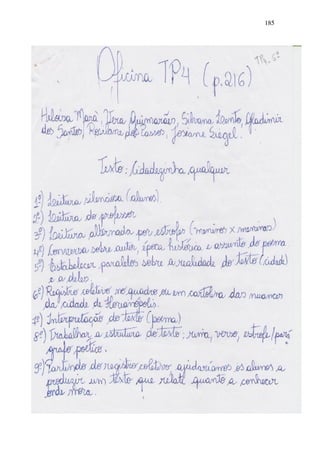 185
TP4. 6º
Oficina TP4 (p.216)
Heloisa Mara, Vera Guimarães, Silvana Bento, Vladimir
dos Santos, Rosilane dos Passos, Joseane Siegel.
Texto: Cidadezinha qualquer
1º) Leitura silenciosa (alunos).
2º) Leitura do professor
3º) Leitura alternada por estrofes (meninos x meninas)
4º) Conversa sobre autor, época histórica e assunto do poema
5º) Estabelecer paralelos sobre a realidade do texto (cidade)
e a deles.
6º) Registro coletivo no quadro ou em cartolina das nuances
da cidade de Florianópolis.
7º) Interpretação do texto (poema)
8º) Trabalhar a estrutura do texto; rima, verso, estrofe/pará
grafo poético.
9º) Partindo do registro coletivo ajudaríamos os alunos a
produzir um texto que relate quanto a conhecer
onde mora.